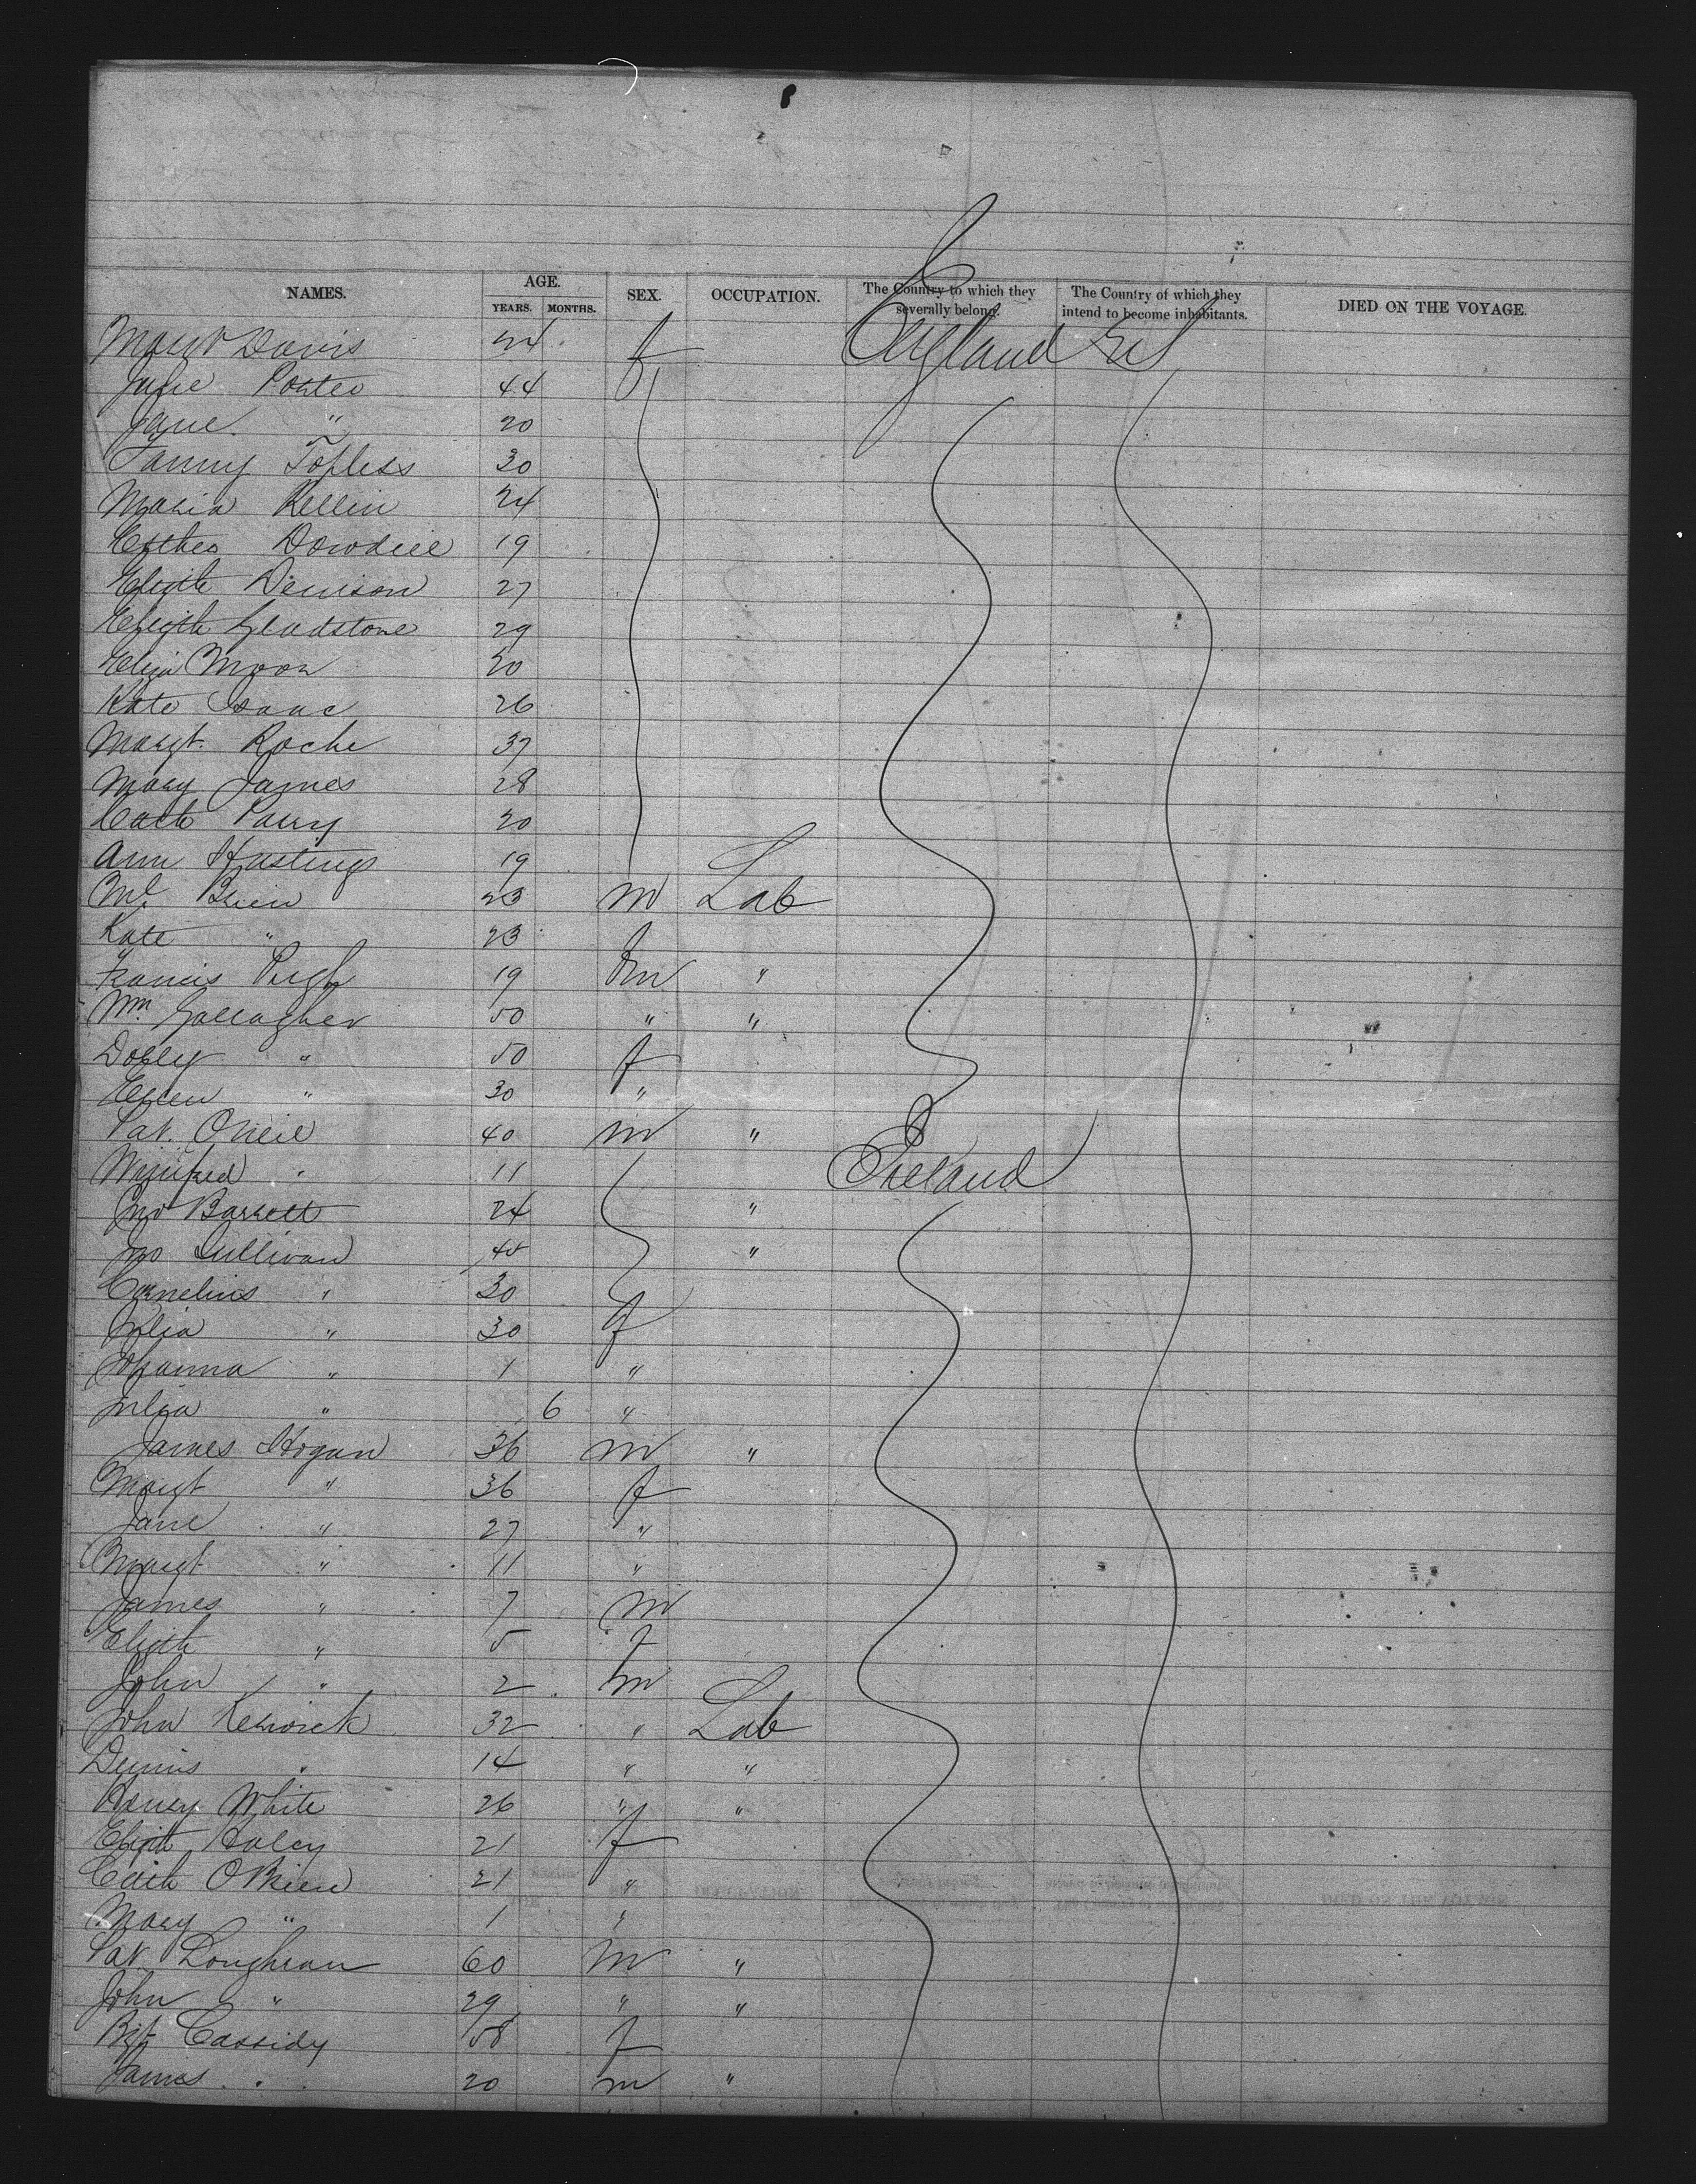 NAMES. AGE. YEARS. MONTHS. SEX. OCCUPATION. The Country to which they severally belong. The Country of which they intend to become inhabitants. DIED ON THE VOYAGE.
Margt Davis 24 f England US
Julie Porter 44
Jane " 20
Fanny Topless 30
Maria Kellin 24
Esther Dowdiee 19
Elizth Denison 27
Elizth Gladstone 29
Eliza Moon 20
Kate Isaac 26
Margt. Roche 37
Mary James 28
Cath Parry 20
Ann Hastings 19
Ml. Brien 23 m Lab
Kate " 23 f
Francis Pugh 19 m "
Wm. Gallagher 50 " "
Dolly " 50 f
Ellen " 30 "
Pat. ONeil 40 m " Ireland
Winifred " 11
Jno Barrett 24 "
Jno Sullivan 45 "
Cornelius " 30
Julia " 30 f
Johanna " 1 "
Julia " 6 "
James Hogan 36 m "
Margt " 36 f
Jane " 27 "
Margt " 11 "
James " 7 m
Elizth " 5 f
John " 2 m
John Keswick 32 " Lab
Dennis " 14 " "
Henry White 26 " "
Elizth Haley 21 f
Cath OBrien 21 "
Mary " 1 "
Pat. Loughran 60 m "
John " 29 " "
Bgt Cassidy 58 f
James " 20 m "